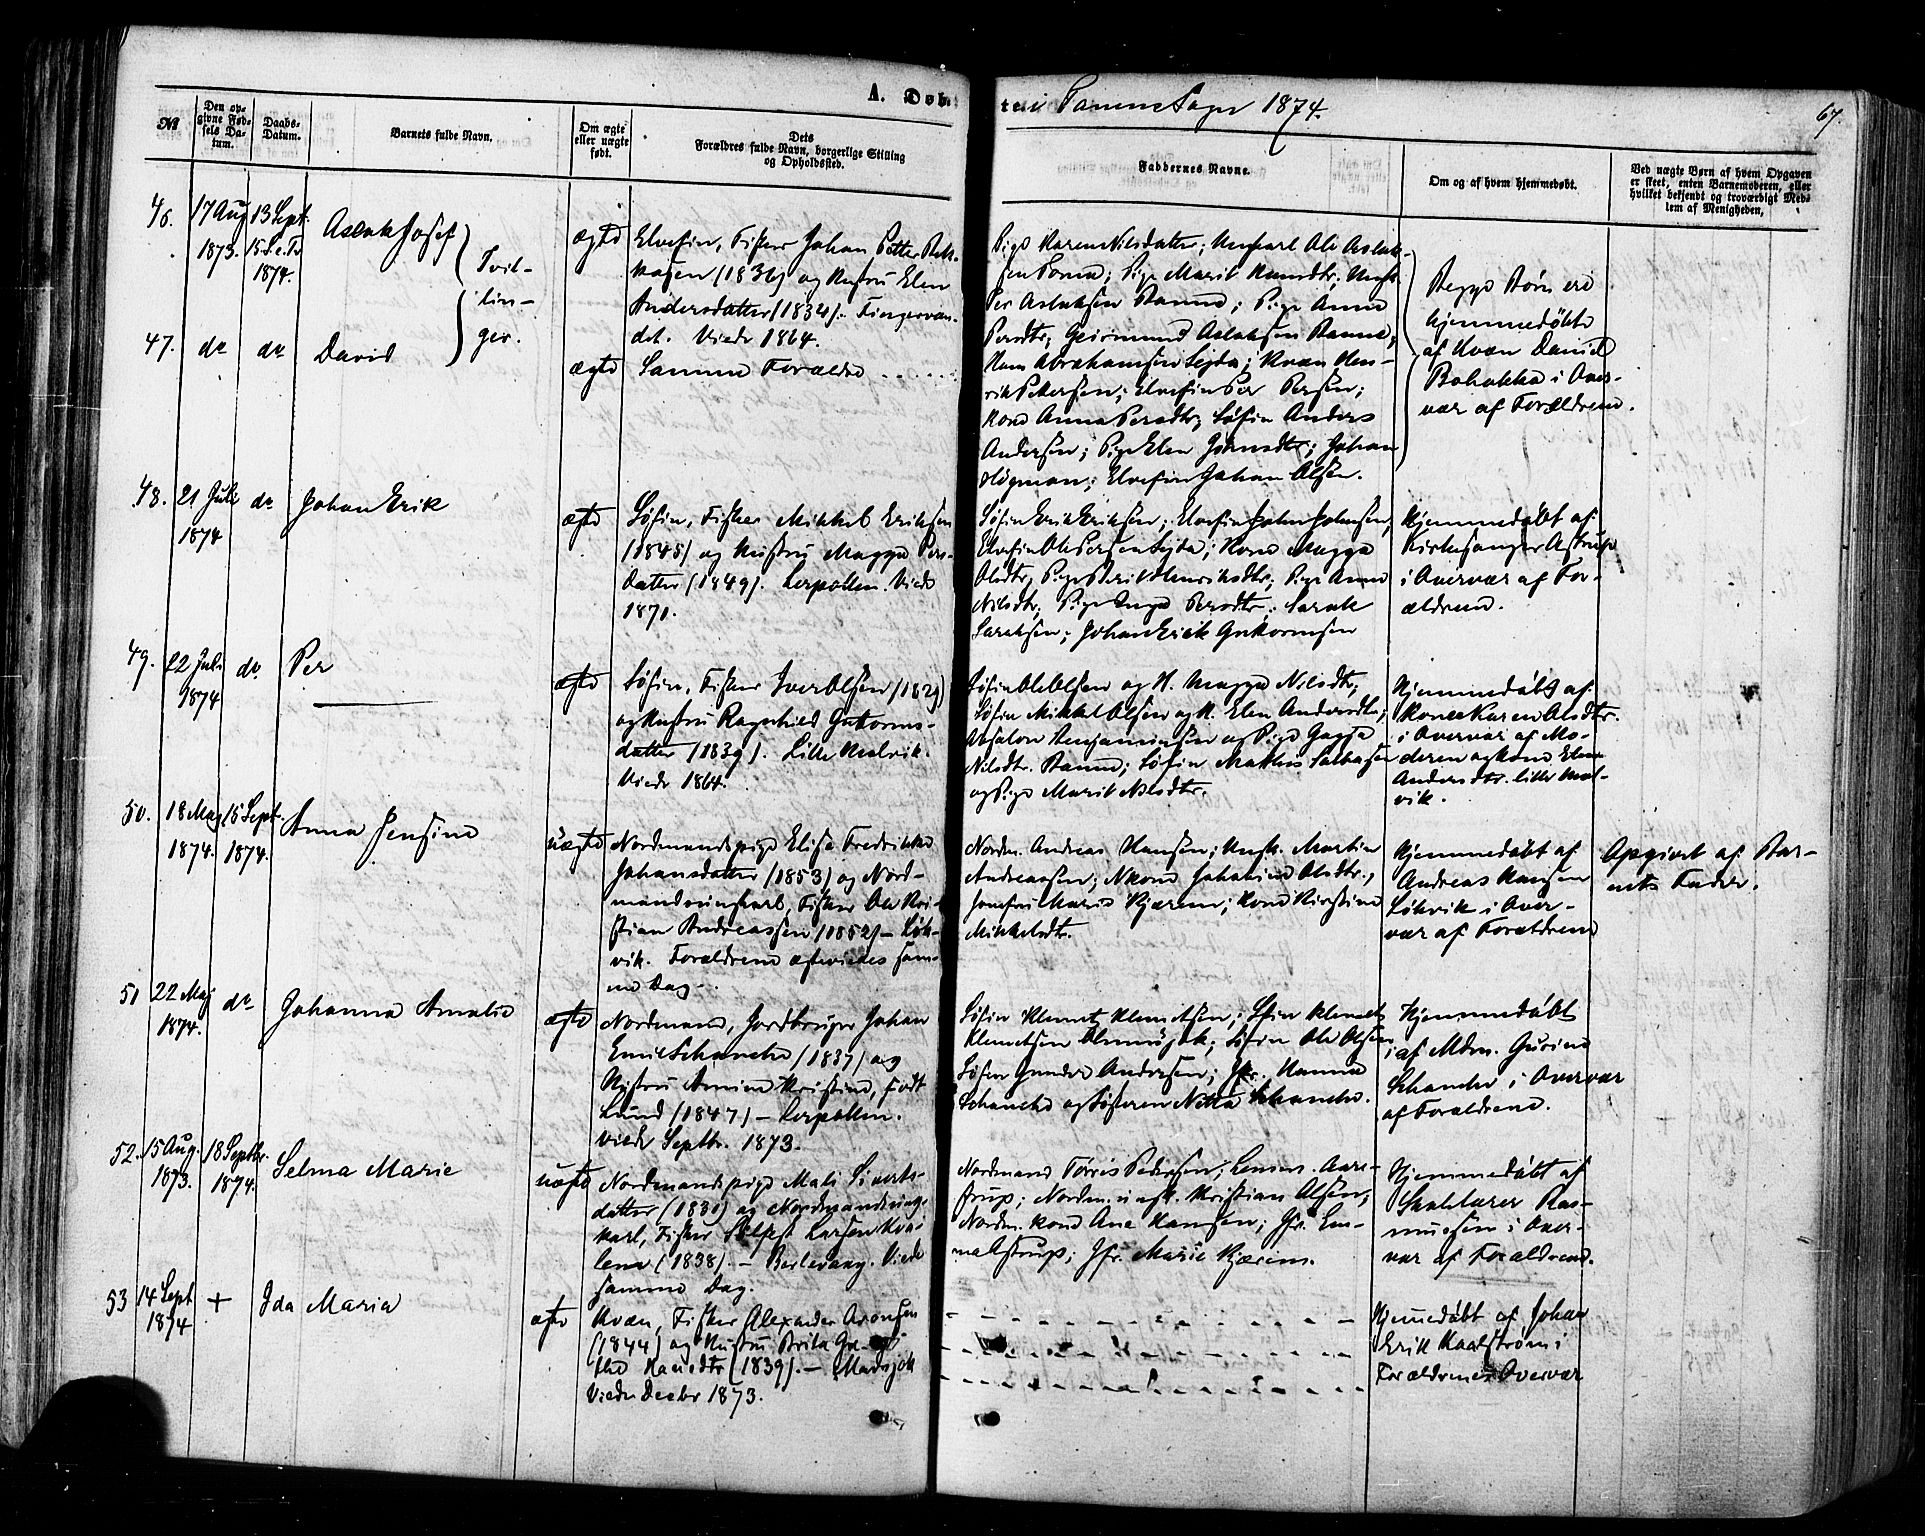 A. Døb-
te i Tanens Sogn 1874.
67.
№
Den op-
givne Fød-
sels Da-
tum.
Daabs-
Datum.
Barnets fulde Navn.
Om ægte
eller uægte
født.
Dets
Forældres fulde Navn, borgerlige Stilling
og Opholdssted.
Faddernes Navne.
Om og af hvem hjemmedøbt.
Ved uægte Børn af hvem Opgaven
er skeet, enten Barnemoderen, eller
hvilket bekjendt og troværdigt Med-
lem af Menigheden,
46.
17 Aug
1873.
13 Sept.
1874.
Aslak Josef
Tvil-
lin-
ger.
ægte
Elvefin, Fisker Johan Petter
(1836) og Hustru Elen
Andersdatter (1834).
Viede 1864.
Pige Karen Nilsdatter; Ungkarl Ole Aslak-
sen Tana; Pige Marit Hansdtr; Ungk.
Per Aslaksen Tanna; Pige Anna
Persdtr; Geirmund Aslaksen Tanna,
Hans Abrahamsen Sejda; Kvæn Hen-
rik Petersen; Elvefin Per Persen;
Kone Anna Persdtr; Søfin Anders
Andersen; Pige Elen Johnsdtr; Johan
Högman; Elvefin Johan Olsen.
Begge Børn ere
hjemmedøbte
af Kvæn Daniel
i Over-
vær af Forældrene.
47.
do
do
David
ægte
Samme Forældre
48.
21 Juli
1874
do
Johan Erik
ægte
Søfin, Fisker Mikkel Eriksen
(1845) og Hustru Magga Pers-
datter (1849). Lerpollen. Viede
1871.
Søfin Erik Eriksen; Elvefin John Johnsen;
Elvefin Ole Persen Sejda; Kone Magga
Olsdtr, Pige Berit Henriksdtr; Pige Anna
Nilsdtr; Pige Inga Persdtr; Sarak
Saraksen; Johan Erik Guttormsen
Hjemmedøbt af
Kirkesanger Astrup
i Overvær af For-
ældrene.
49.
22 Juli
1874
do
Per
ægte
Søfin, Fisker Iver Olsen (1829)
og Hustru Ragnhild Guttorms-
datter (1839). Lille Molvik.
Viede 1864.
Søfin Ole Olsen og H. Magga Nilsdtr;
Søfin Mikkel Olsen og H. Elen Andersdtr;
Absalon Benjaminsen og Pige Gagga
Nilsdtr. Tanna; Søfin Mathis Salkosen
og Pige Marit Nilsdtr.
Hjemmedøbt af
Kone Karen Olsdtr.
i Overvær af Mo-
deren og Kone Elen
Andersdtr. Lille Mol-
vik.
50.
18 Maj
1874.
15 Sept.
1874.
Anna Jensine
uægte
Nordmandspige Elisa Fredrikke
Johansdatter (1853) og Nord-
mandsungkarl, Fisker Ole Kri-
stian Andreassen (1852) – Løk-
vik. Forældrene egteviedes sam-
me Dag.
Nordm. Andreas Hansen; Ungk. Martin
Andreassen; Nkone Johanna Olsdtr.,
Jomfru Marie Kjærem; Kone Kirstine
Mikkelsdtr.
Hjemmedøbt af
Andreas Hansen
Løkvik i Over-
vær af Forældrene
Opgivet af Bar-
nets Fader.
51
22 Maj
1874.
do
Johanna Amalie
ægte
Nordmand, Jordbruger Johan
Emil Schanche (1837) og
Hustru Amine Kristine, født
Lund (1847) – Lerpollen.
Viede Septbr. 1873.
Søfin Klemet Klemetsen; Søfin Klemet
Klemetsen; Søfin Ole Olsen
Søfin Gunder Andersen; Jfr. Hanna
Schanche og Søsteren Netta Schanche.
Hjemmedøbt
af Mdm. Gurine
Schanche i Overvær
af Forældrene.
52.
15 Aug.
1873.
18 Septbr.
1874.
Selma Marie
uægte
Nordmandspige Mali Siverts-
datter (1830) og Nordmandsung-
karl, Fisker Larsen
(1838). – Berlevaag. Viede
samme Dag.
Nordmand Tørris Pedersen; Lensm. Aars-
trup; Nordm. ungk. Kristian Olsen;
Nordm. kone Ane Hansen; Jfr. Em-
ma Astrup; Jfr. Marie Kjærem.
Hjemmedøbt af
Skolelærer Ras-
mussen i Over-
vær af Forældrene.
53
14 Sept
1874
+
Ida Maria
ægte
Kvæn, Fisker Alexander Aronsen
(1844) og Hustru Brita Gre-
the Hansdtr (1839). – Madsjok
Viede Decbr 1873.
Hjemmedøbt af Johan
Erik Kaalstrøm i
Forældrenes Overvær